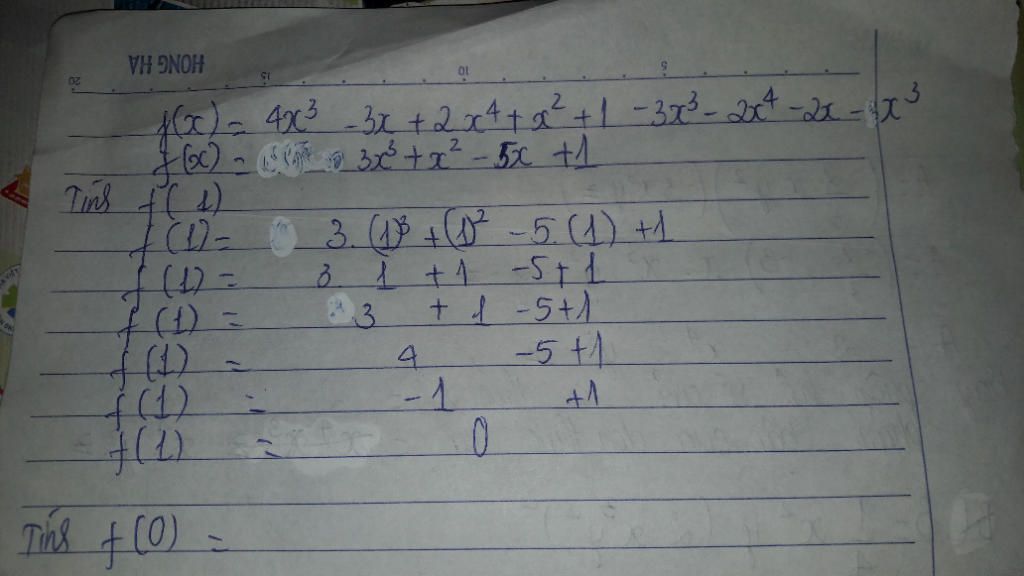 HONG HA
20 15 10 5
f(x) = 4x³ - 3x + 2x⁴ + x² + 1 - 3x³ - 2x⁴ - 2x - x³
f(x) = 3x³ + x² - 5x + 1
Tính f(1)
f(1) = 3. (1)³ + (1)² - 5. (1) + 1
f(1) = 3. 1 + 1 - 5 + 1
f(1) = 3 + 1 - 5 + 1
f(1) = 4 - 5 + 1
f(1) = -1 + 1
f(1) = 0
Tính f(0) =